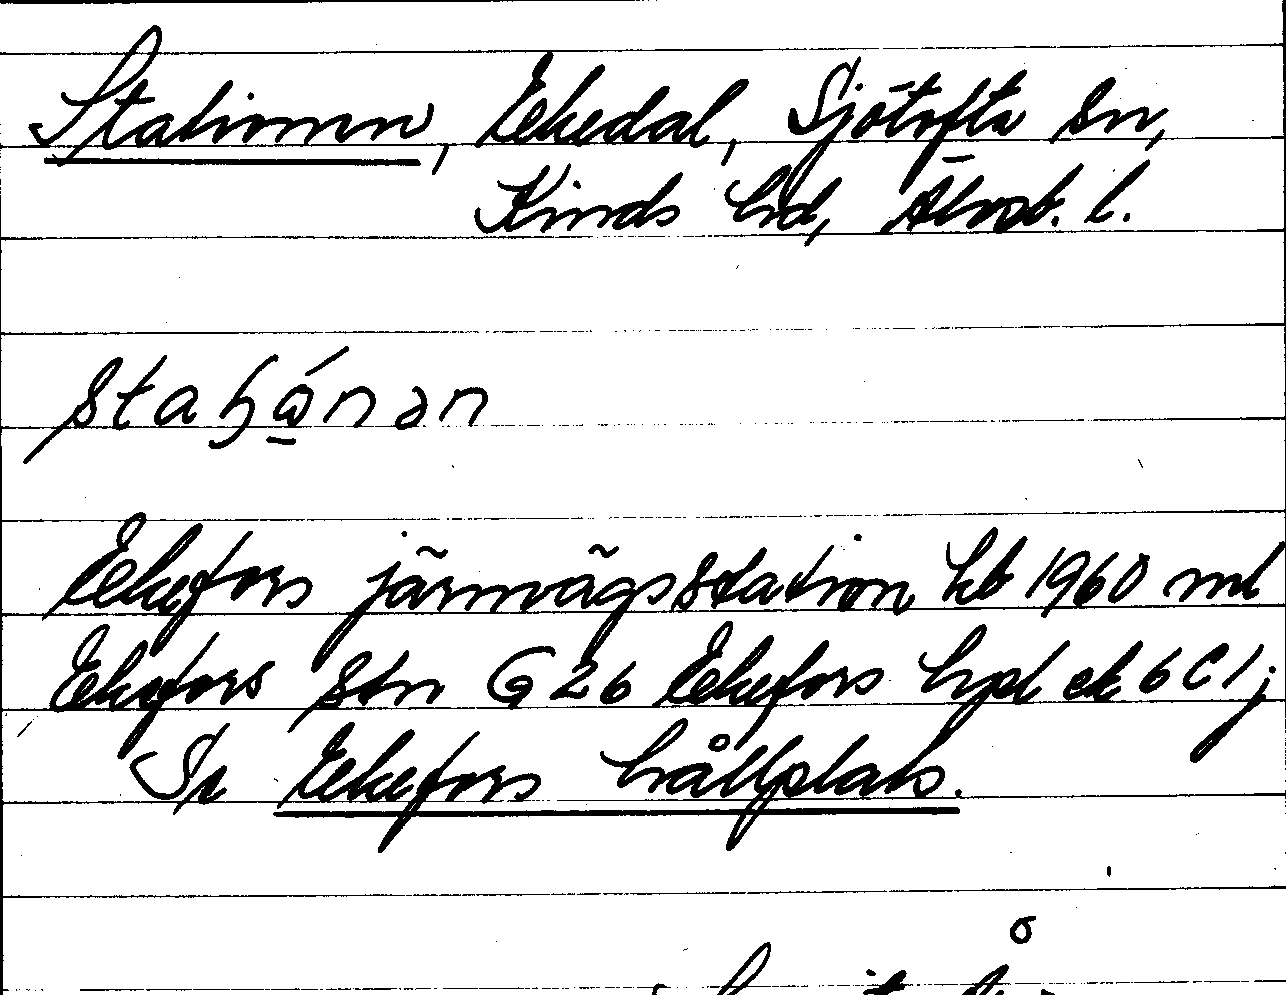 Stationen, Ekedal, Sjötofta sn,
Kinds hd, Älvsb. l.
staɧώ̠nən
Ekefors järnvägsstation hb 1960 ml
Ekefors stn G 26 Ekefors hpl ek 6 C 1 j
Se Ekefors hållplats.